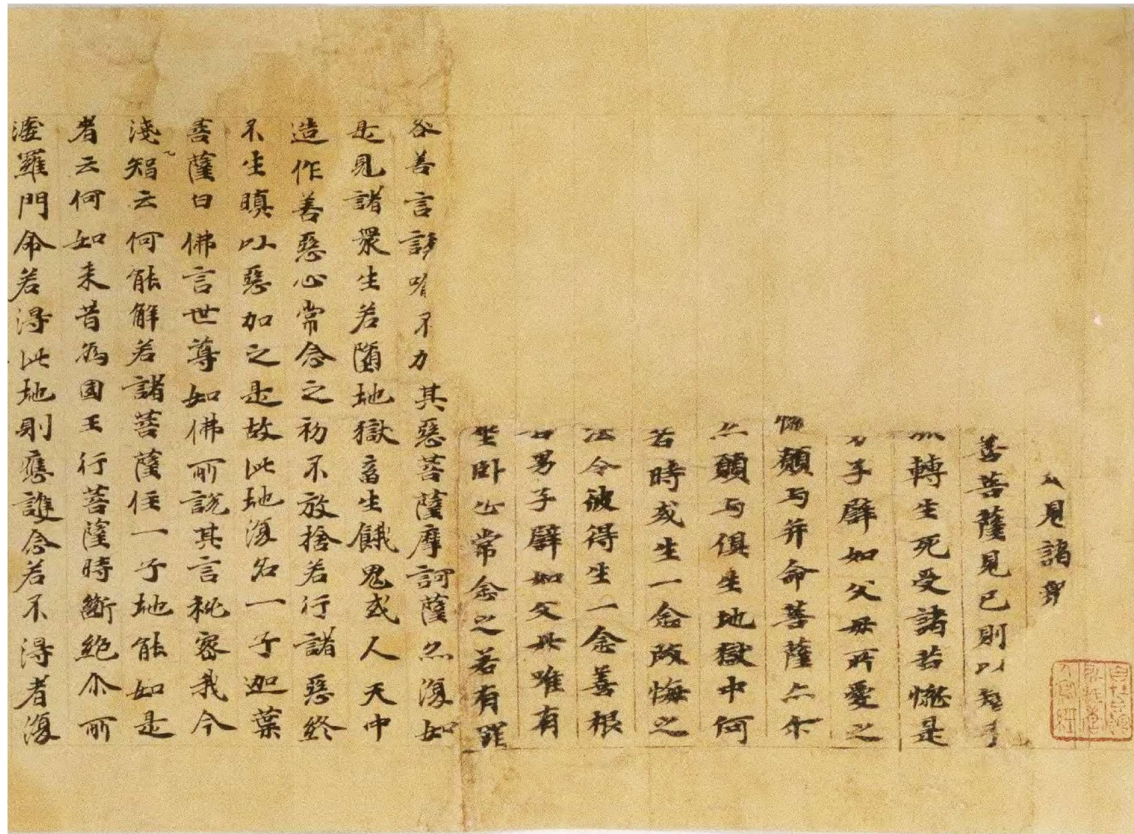 見諸
善菩薩見已則以
轉生死受諸苦惱是
子譬如父母所愛之
願与并命菩薩亦尒
願与俱生地獄中何
苦時或生一念改悔之
法令彼得生一念善根
男子譬如父母唯有
坐卧心常念之若有罪
咎善言誘喻不加其惡菩薩摩訶薩亦復如
是見諸眾生若墮地獄畜生餓鬼或人天中
造作善惡心常念之初不放捨若行諸惡終
不生瞋以惡加之是故此地復名一子迦葉
菩薩白佛言世尊如佛所說其言秘密我今
淺智云何能解若諸菩薩住一子地能如是
者云何如来昔為國王行菩薩時斷絕尒所
婆羅門命若得此地則應護念若不得者復